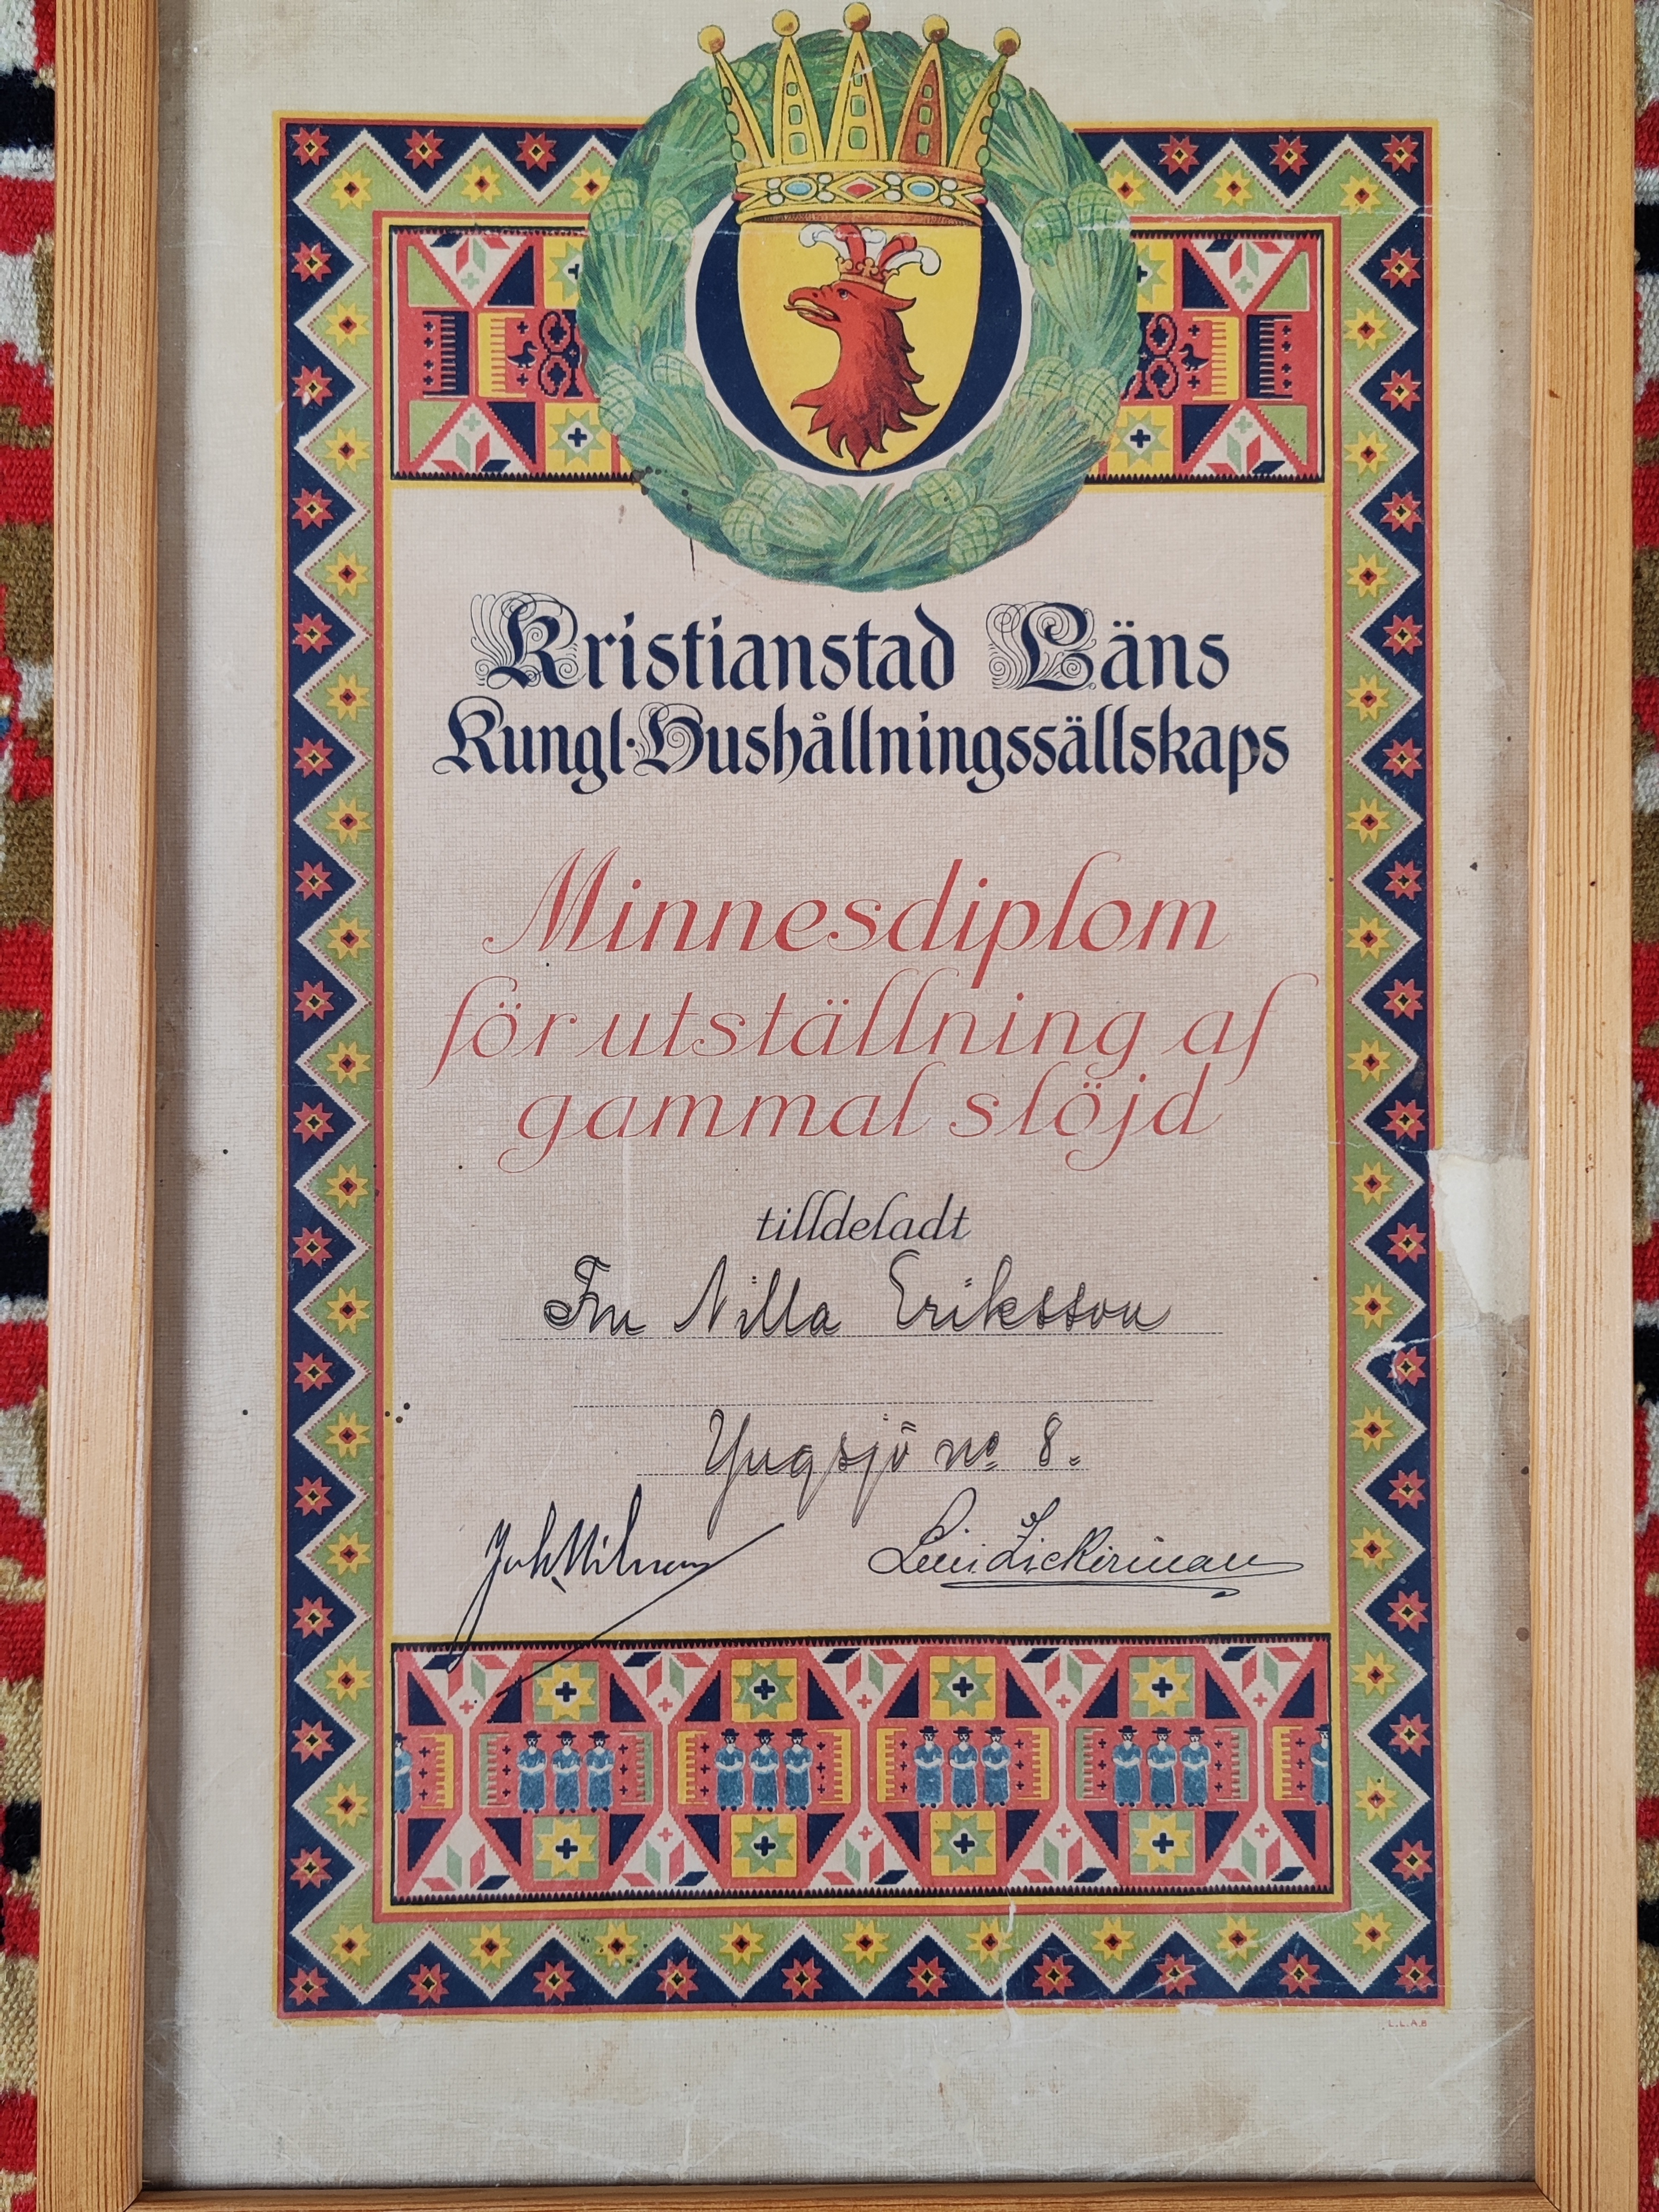 Kristianstad Läns
Kungl. Hushållningssällskaps
Minnesdiplom
för utställning af
gammal slöjd
tilldeladt
Fru Nilla Eriksson
Yngsjö no 8.
Joh Nilsson
Lilli Zickerman
L.L.A.B